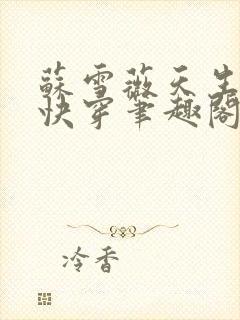 蘇雪薇天生
快穿筆趣閣
冷香